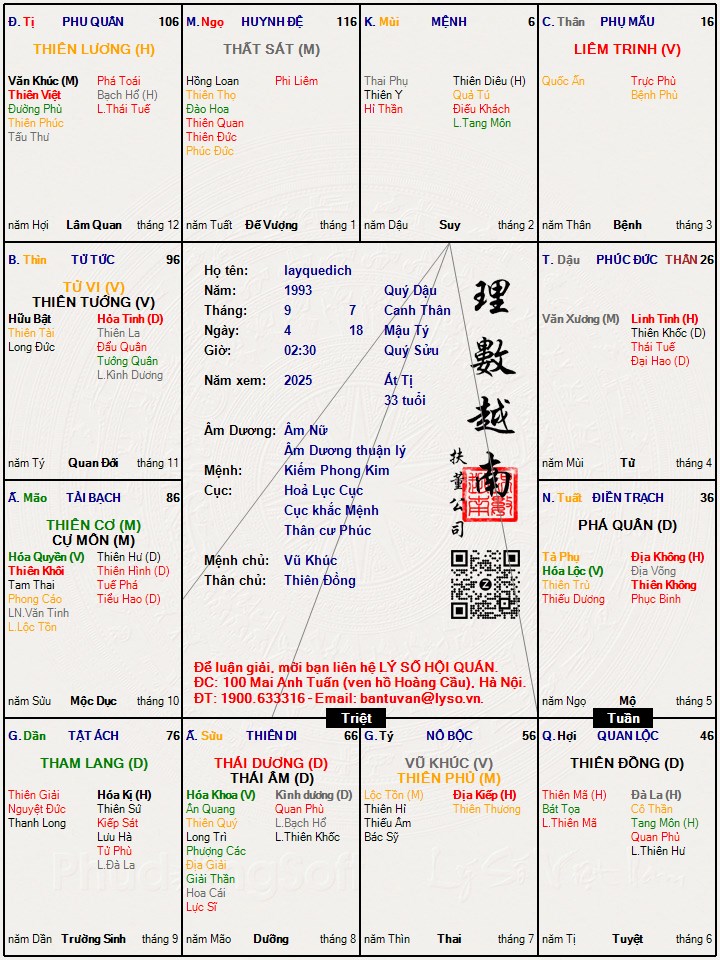 Đ. Tị PHU QUÂN 106
THIÊN LƯƠNG (H)
Văn Khúc (M) Phá Toái
Thiên Việt Bạch Hổ (H)
Đường Phù L.Thái Tuế
Thiên Phúc
Tấu Thư
năm Hợi Lâm Quan tháng 12
M. Ngọ HUYNH ĐỆ 116
THẤT SÁT (M)
Hồng Loan Phi Liêm
Thiên Thọ
Đào Hoa
Thiên Quan
Thiên Đức
Phúc Đức
năm Tuất Đế Vượng tháng 1
K. Mùi MỆNH 6
Thai Phụ Thiên Diêu (H)
Thiên Y Quả Tú
Hỉ Thần Điếu Khách
L.Tang Môn
năm Dậu Suy tháng 2
C. Thân PHỤ MẪU 16
LIÊM TRINH (V)
Quốc Ấn Trực Phù
Bệnh Phù
năm Thân Bệnh tháng 3
B. Thìn TỬ TỨC 96
TỬ VI (V)
THIÊN TƯỚNG (V)
Hữu Bật Hỏa Tinh (D)
Thiên Tài Thiên La
Long Đức Đẩu Quân
Tướng Quân
L.Kình Dương
năm Tý Quan Đới tháng 11
Họ tên: layquedich
Năm: 1993 Quý Dậu
Tháng: 9 7 Canh Thân
Ngày: 4 18 Mậu Tý
Giờ: 02:30 Quý Sửu
Năm xem: 2025 Ất Tị
33 tuổi
Âm Dương: Âm Nữ
Âm Dương thuận lý
Mệnh: Kiếm Phong Kim
Cục: Hoả Lục Cục
Cục khắc Mệnh
Thân cư Phúc
Mệnh chủ: Vũ Khúc
Thân chủ: Thiên Đồng
理數越南
扶董公司
Để luận giải, mời bạn liên hệ LÝ SỐ HỘI QUÁN.
ĐC: 100 Mai Anh Tuấn (ven hồ Hoàng Cầu), Hà Nội.
ĐT: 1900.633316 - Email: bantuvan@lyso.vn.
T. Dậu PHÚC ĐỨC THÂN 26
Văn Xương (M) Linh Tinh (H)
Thiên Khốc (D)
Thái Tuế
Đại Hao (D)
năm Mùi Tử tháng 4
Ấ. Mão TÀI BẠCH 86
THIÊN CƠ (M)
CỰ MÔN (M)
Hóa Quyền (V) Thiên Hư (D)
Thiên Khôi Thiên Hình (D)
Tam Thai Tuế Phá
Phong Cáo Tiểu Hao (D)
LN.Văn Tinh
L.Lộc Tồn
năm Sửu Mộc Dục tháng 10
N. Tuất ĐIỀN TRẠCH 36
PHÁ QUÂN (D)
Tả Phụ Địa Không (H)
Hóa Lộc (V) Địa Võng
Thiên Trù Thiên Không
Thiếu Dương Phục Binh
năm Ngọ Mộ tháng 5
Triệt
Tuần
G. Dần TẬT ÁCH 76
THAM LANG (D)
Thiên Giải Hóa Kị (H)
Nguyệt Đức Thiên Sứ
Thanh Long Kiếp Sát
Lưu Hà
Tử Phù
L.Đà La
năm Dần Trường Sinh tháng 9
Ấ. Sửu THIÊN DI 66
THÁI DƯƠNG (D)
THÁI ÂM (D)
Hóa Khoa (V) Kình dương (D)
Ân Quang Quan Phủ
Thiên Quý L.Bạch Hổ
Long Trì L.Thiên Khốc
Phượng Các
Địa Giải
Giải Thần
Hoa Cái
Lực Sĩ
năm Mão Dưỡng tháng 8
G. Tý NÔ BỘC 56
VŨ KHÚC (V)
THIÊN PHỦ (M)
Lộc Tồn (M) Địa Kiếp (H)
Thiên Hỉ Thiên Thương
Thiếu Âm
Bác Sỹ
năm Thìn Thai tháng 7
Q. Hợi QUAN LỘC 46
THIÊN ĐỒNG (D)
Thiên Mã (H) Đà La (H)
Bát Tọa Cô Thần
L.Thiên Mã Tang Môn (H)
Quan Phủ
L.Thiên Hư
năm Tị Tuyệt tháng 6